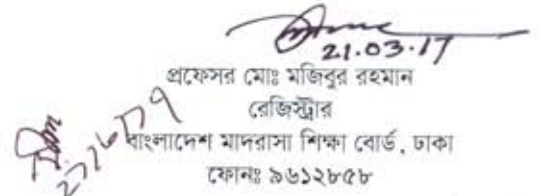 21.03.17
প্রফেসর মোঃ মজিবুর রহমান
রেজিস্ট্রার
বাংলাদেশ মাদরাসা শিক্ষা বোর্ড, ঢাকা
ফোনঃ ৯৬১২৮৫৮